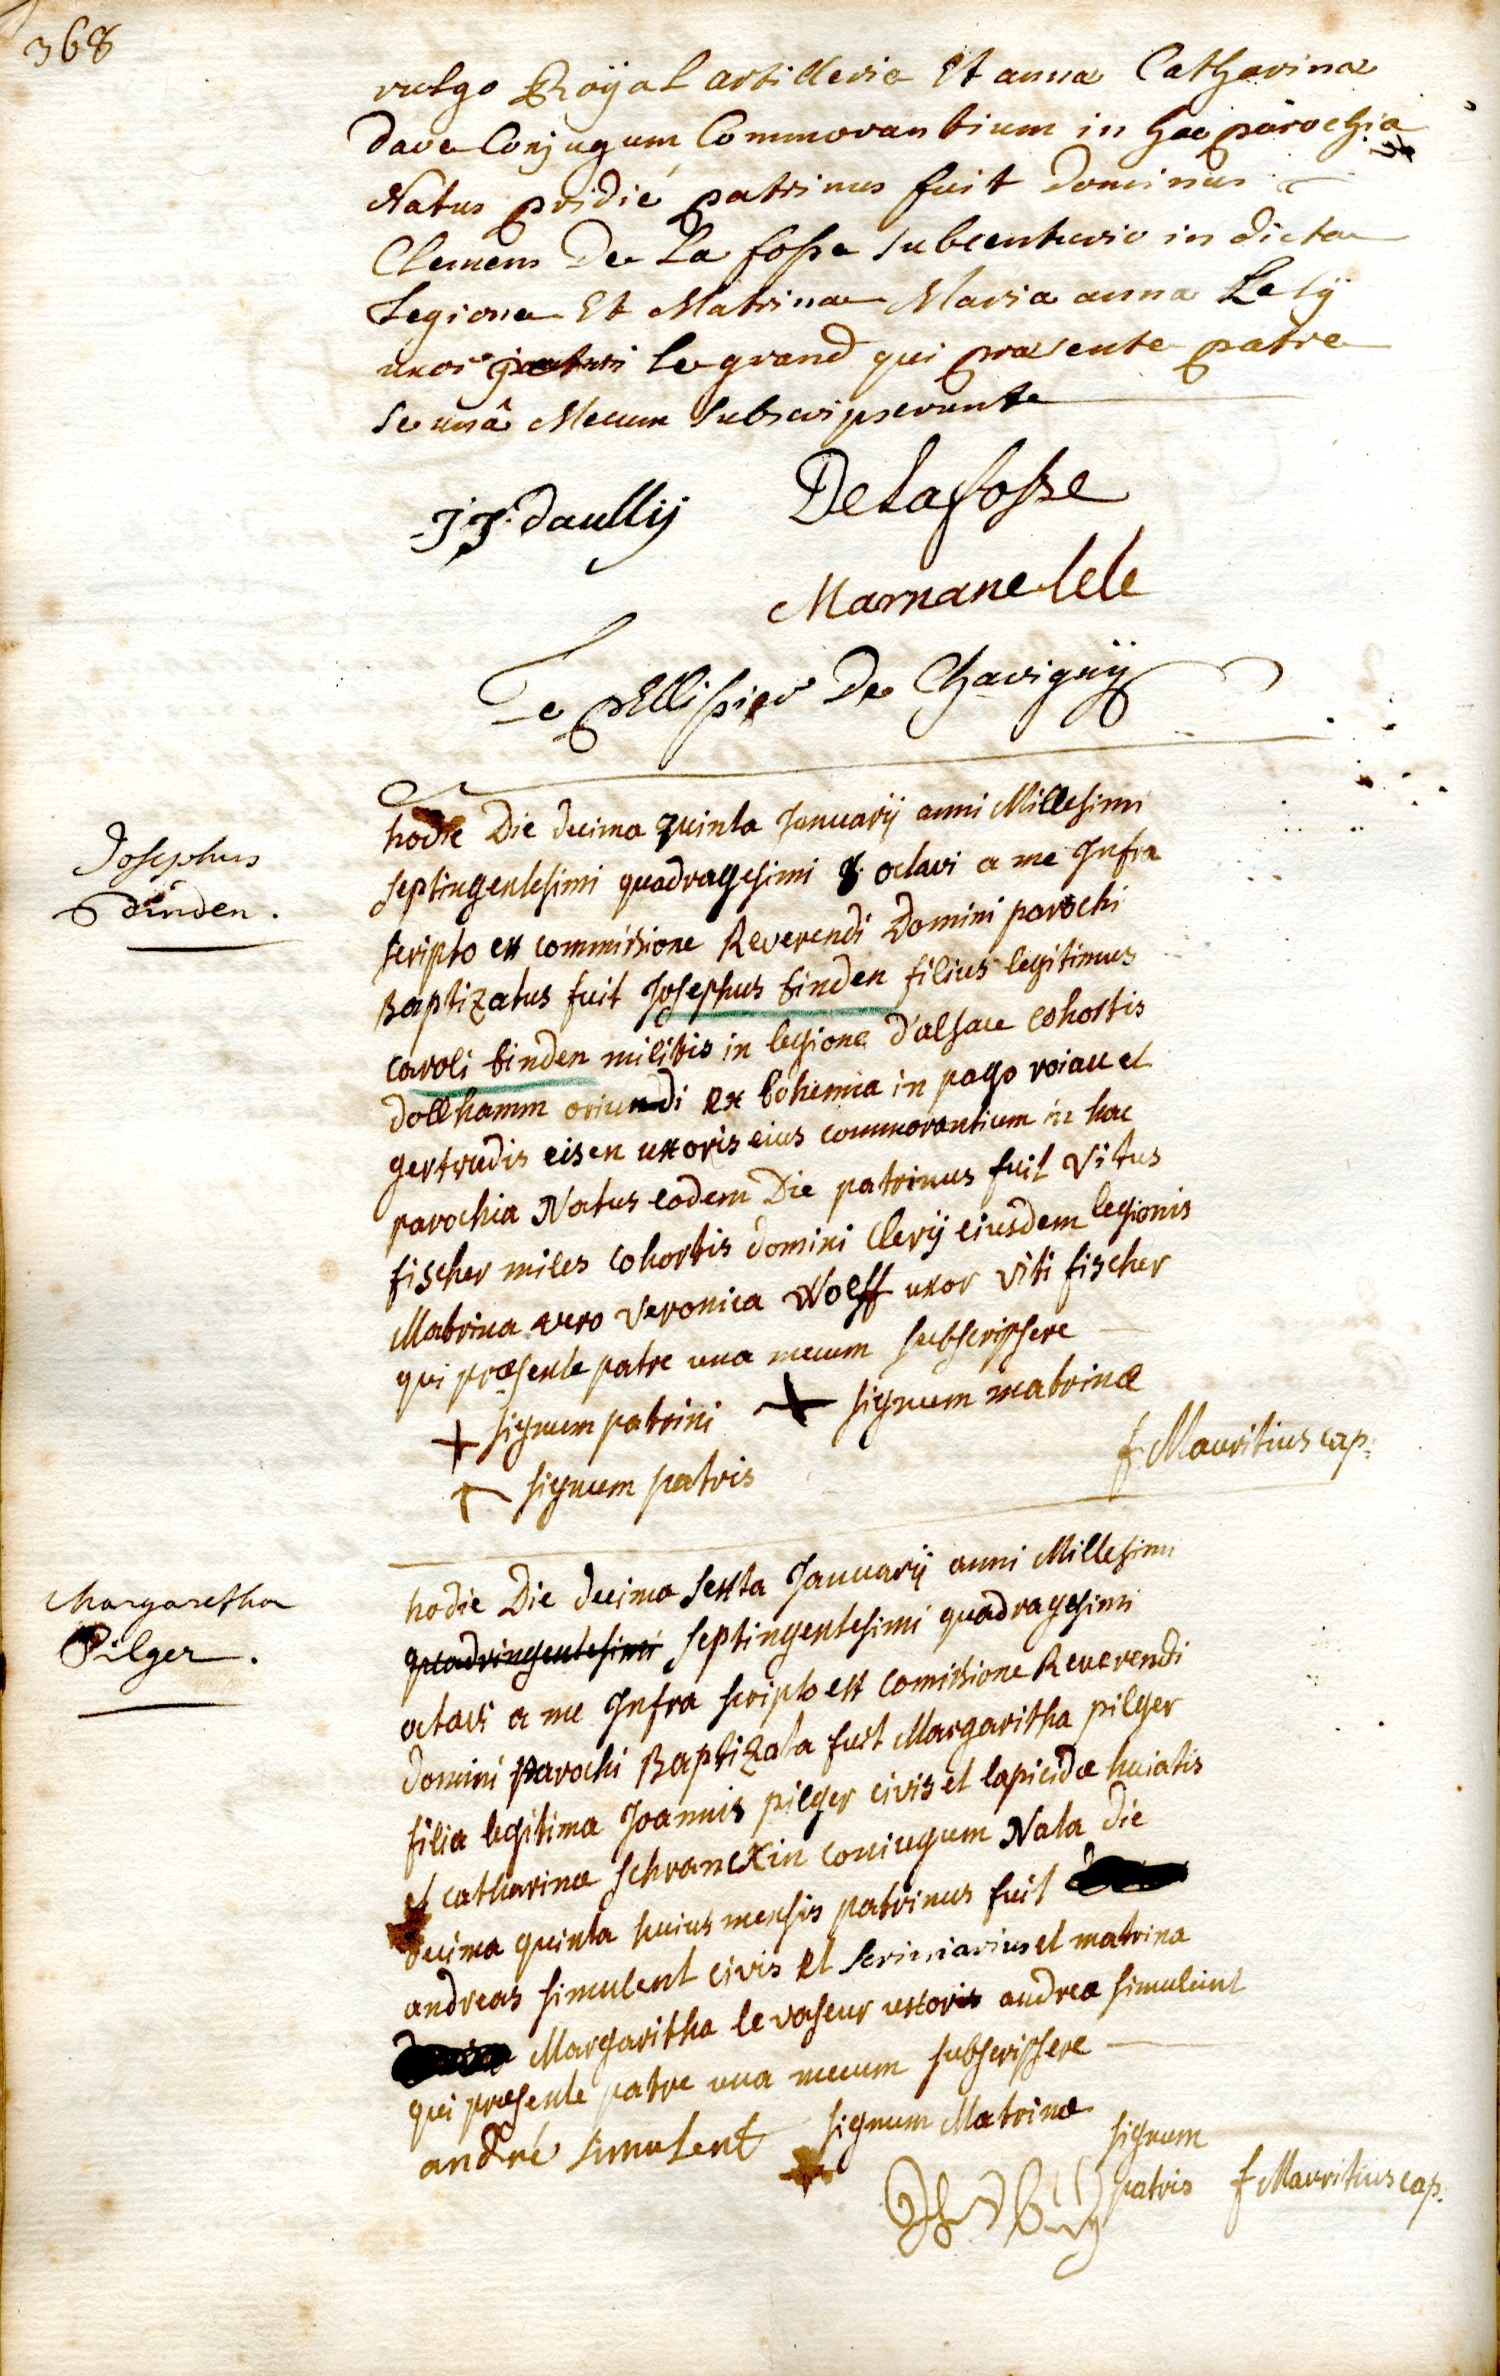 368
vulgo Royal artillerie Et anna Catharina
Dave Conjugum Commorantium in hac parochia
Natus pridié patrinus fuit Dominus
Clemens De La fosse subcenturio in dicta
Legione Et Matrina Maria anna Lely
uxor le grand qui præsente patre
se unâ Mecum subscripserunt
J J. daullij
De Lafosse
Marnane lele
Le pellissier De Chavigny
Josephus
binden.
hodie Die decima quinta Januarij anni Millesimi
septingentesimi quadragesimi octavi a me Infra
scripto ex commissione Reverendi Domini parochi
Baptizatus fuit Josephus binden filius legitimus
caroli binden militis in legione d'alsace cohortis
dollhamm oriundi ex bohemia in pago roiau et
gertrudis eisen uxoris eius commorantium in hac
parochia Natus eodem Die patrinus fuit Vitus
fischer miles cohortis domini Clerij eiusdem legionis
Matrina vero Veronica Wolff uxor Viti fischer
qui præsente patre una mecum subscripsere
+ signum patrini + signum matrinæ
+ signum patris
f. Mauritius cap:
Margaretha
Pilger.
hodie Die decima sexta Januarij anni Millesimi
quadringentesimi septingentesimi quadragesimi
octavi a me Infra scripto ex comissione Reverendi
domini parochi Baptizata fuit Margaritha pilger
filia legitima Joannis pilger civis et lapicidæ huiatis
et catharinæ schranckin coniugum Nata Die
decima quinta huius mensis patrinus fuit
andreas simulent civis et scriniarius et matrina
Margaritha le vaseur uxoris andreæ simulent
qui præsente patre una mecum subscripsere
andré simulent
signum Matrinæ
signum
patris
f Mauritius cap: